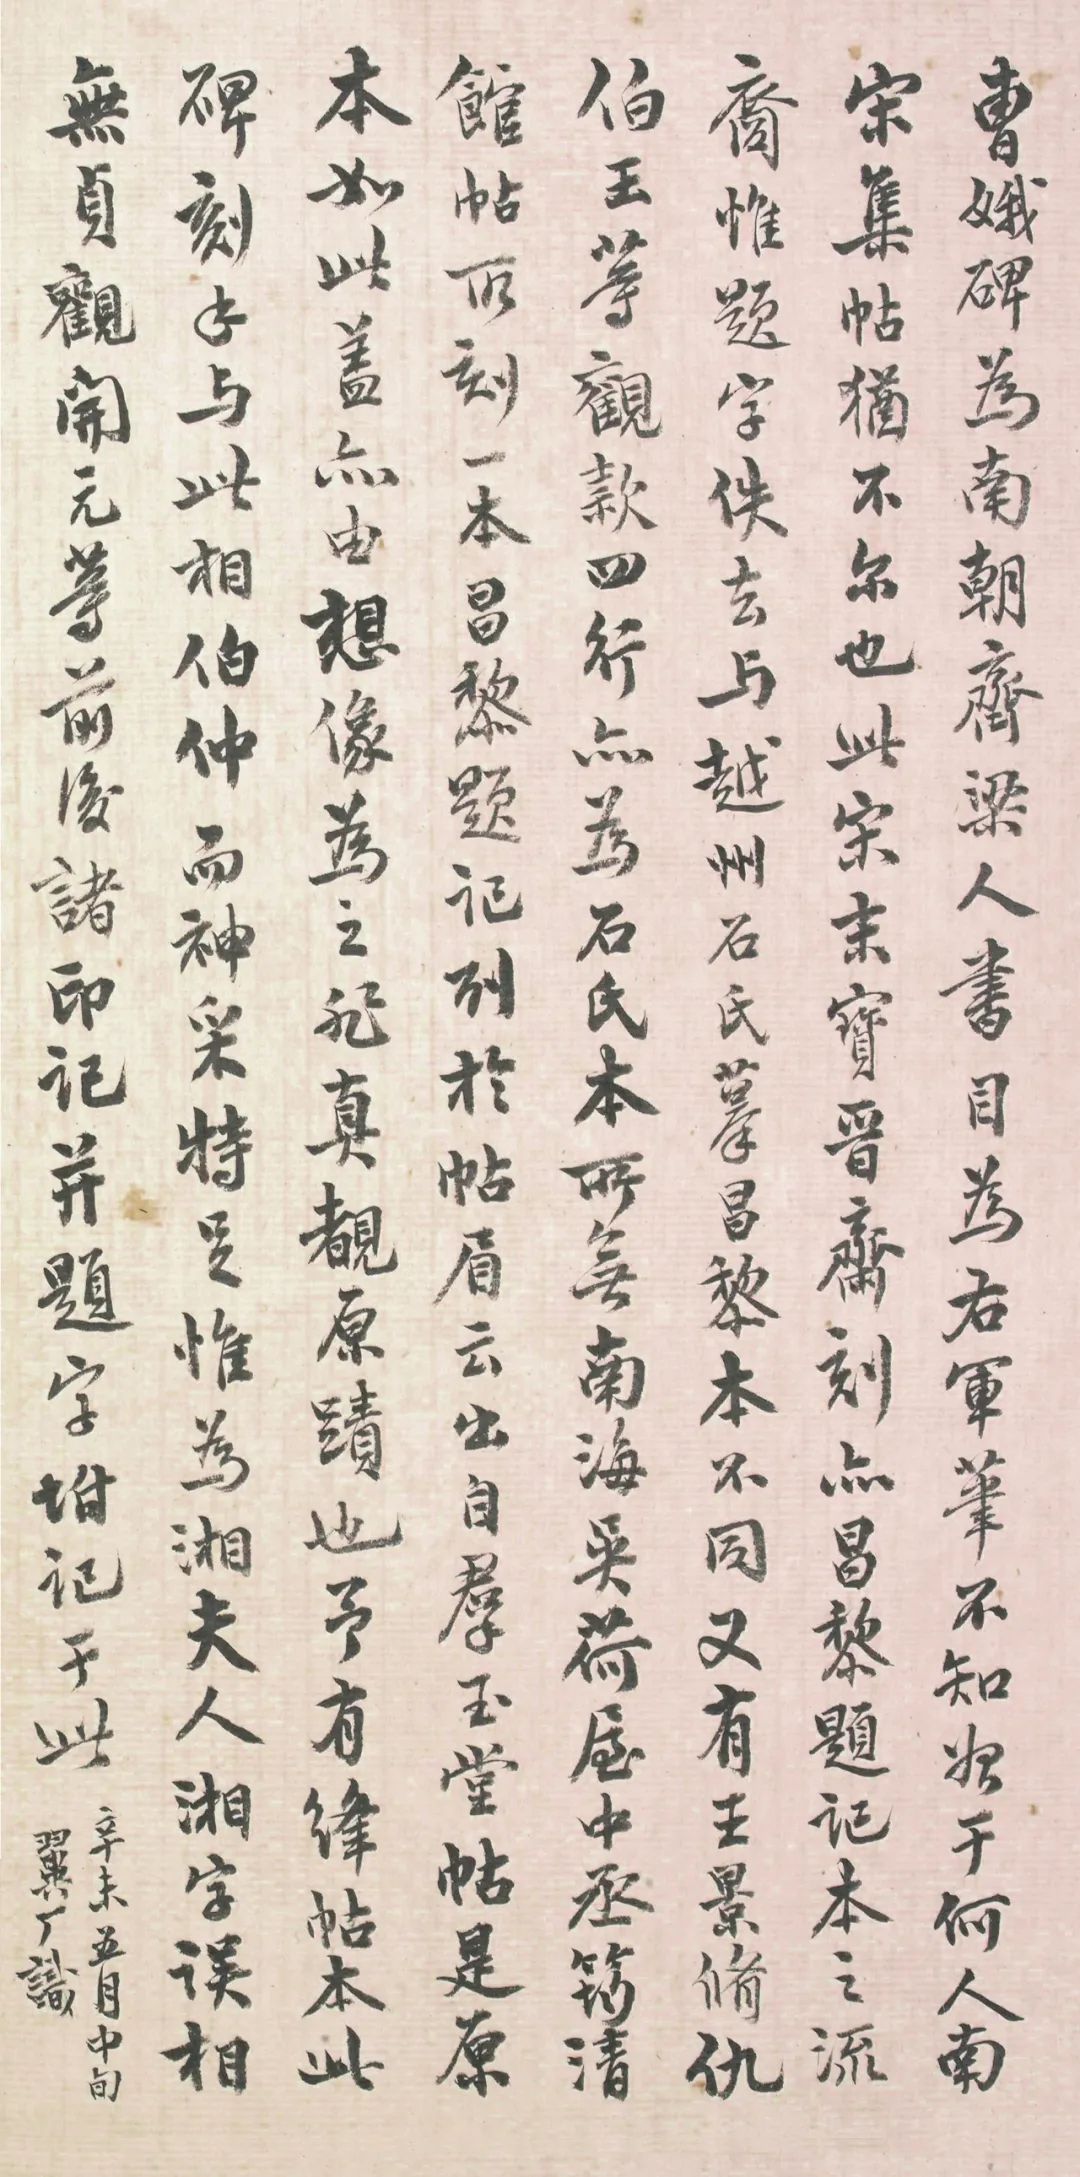 曹娥碑為南朝齊梁人書目為右軍筆不知始于何人南
宋集帖猶不尔也此宋末寶晉齋刻亦昌黎題記本之流
裔惟題字佚去与越州石氏摹昌黎本不同又有王景脩仇
伯玉等觀款四行亦為石氏本所無南海吳荷屋中丞筠清
館帖所刻一本昌黎題记列於帖眉云出自羣玉堂帖是原
本如此盖亦由想像為之非真覩原蹟也予有絳帖本此
碑刻手与此相伯仲而神采特足惟為湘夫人湘字误相
無貞觀開元等前後諸印记并題字坿记于此
辛未五月中旬
翼厂識